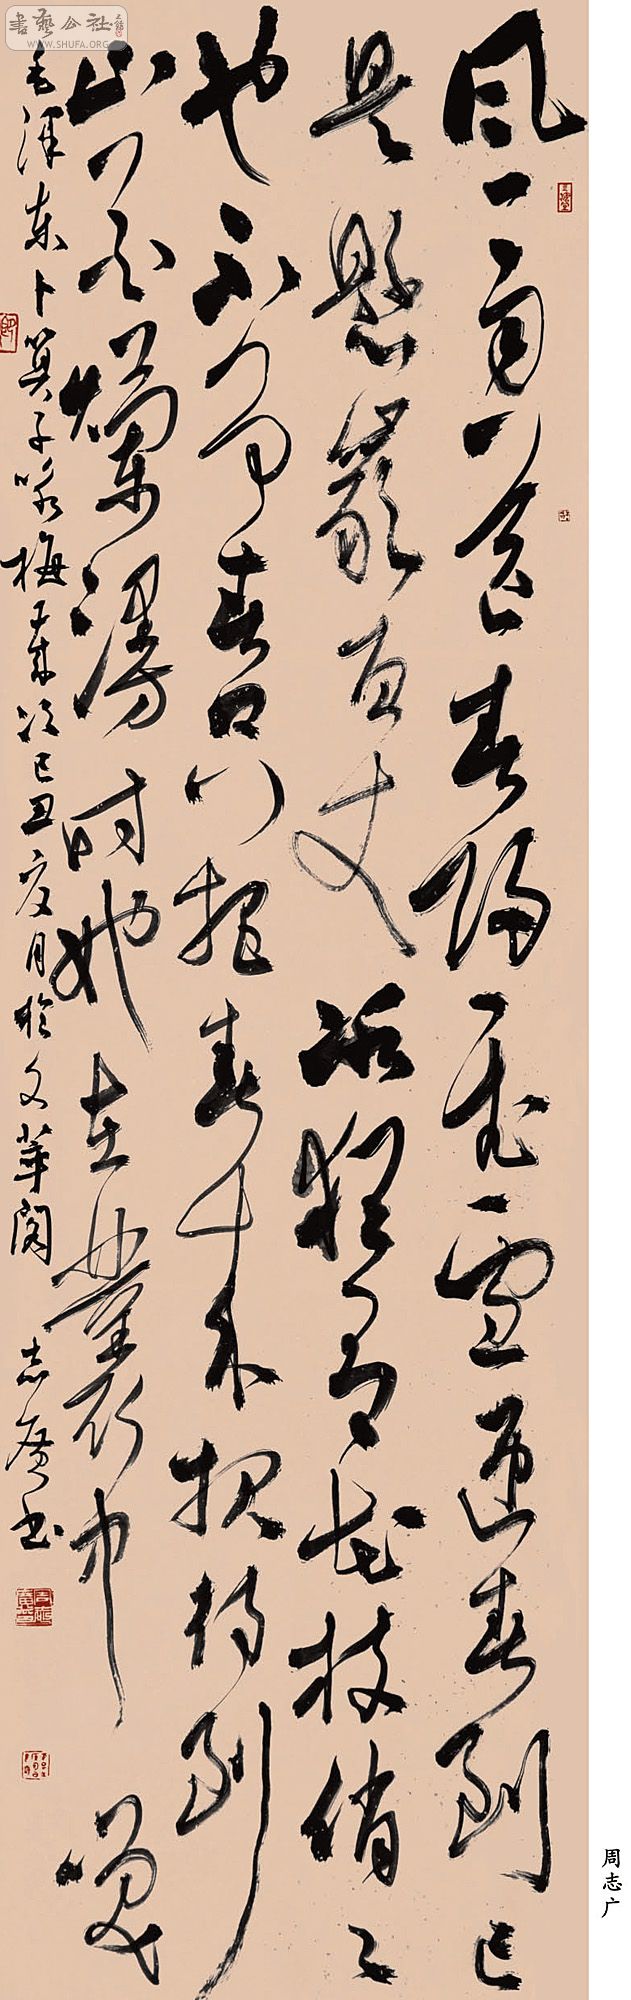 書藝公社
WWW.SHUFA.ORG
風雨送春歸飛雪迎春到已
是懸巖百丈冰猶有花枝俏々
也不爭春只把春來報待到
山花爛漫時她在叢中笑
毛澤東卜算子咏梅 歲次己丑夏月於文華閣 志廣書
周志广